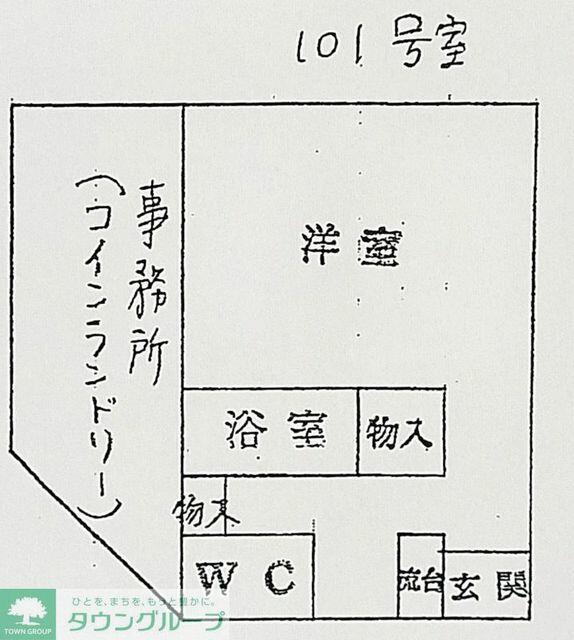 101号室
洋室
事務所
(コインランドリー)
浴室
物入
物入
WC
流台
玄関
ひとを、まちを、もっと豊かに。
タウングループ
TOWN GROUP